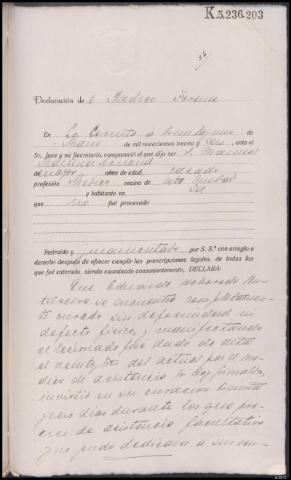 K.5.236.203
Declaración de el Medico Forense
En La Coruña a treinta y uno de
Mayo de mil novecientos treinta y seis, ante el
Sr. Juez y mi Secretario, compareció el que dijo ser D. Manuel
Martinez
mayor años de edad, casado
profesión Médico vecino de esta Ciudad
y habitante en la
que no fué procesado
Instruído y juramentado por S. S.ª con arreglo a
derecho después de ofrecer cumplir las prescripciones legales, de todas las
que fué enterado, siendo examinado convenientemente, DECLARA:
Que Eduardo
se encuentra completamen-
te curado sin deformidad ni
defecto fisico, y manifestando
el lesionado fue dado de alta
el del actual por el mé-
dico de asistencia
invirtió en su curación treinta
y dias durante los que pre-
cisó de asistencia facultativa
y no pudo dedicarse a sus